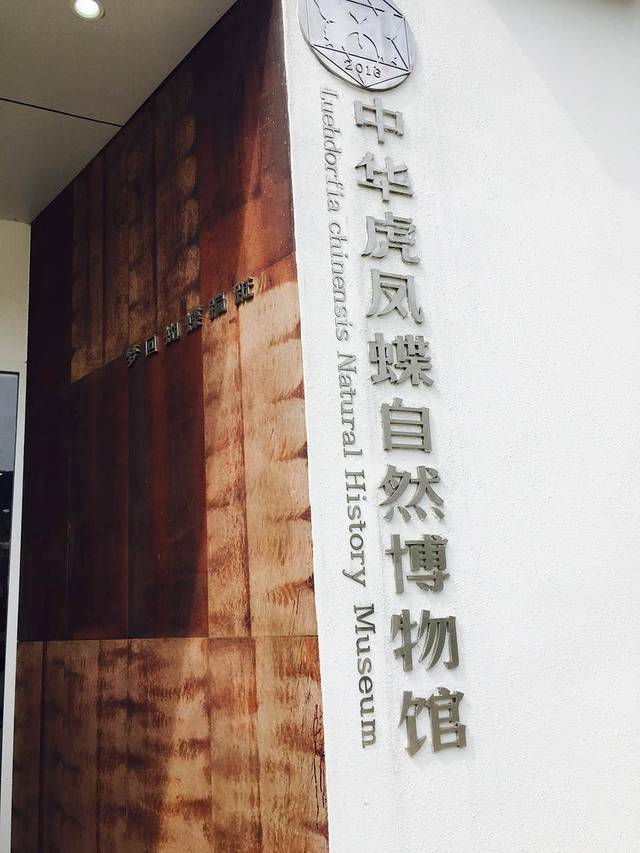 2013
中华虎凤蝶自然博物馆
Luehdorfia chinensis Natural History Museum
梦回蝴蝶